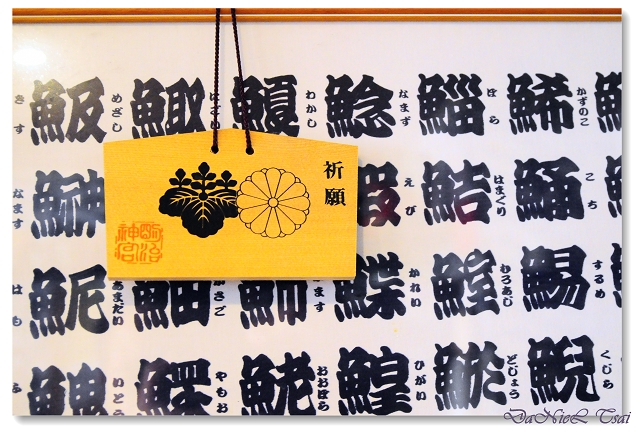 きす 魥 めざし 鯫 わかし 鯰 なまず 鯔 ぼら 鯑 かずのこ
祈願
明治神宮
なます 鰰 鰕 えび 鮚 はまぐり 鯒 こち
はも あまだい かさご 魳 ます 鰈 かれい むろあじ 鯣 するめ
ふ いとう 鰥 やもお 鮱 おおぼら 鰉 ひがい どじょう 鯢 くじら
DaNieL Tsai